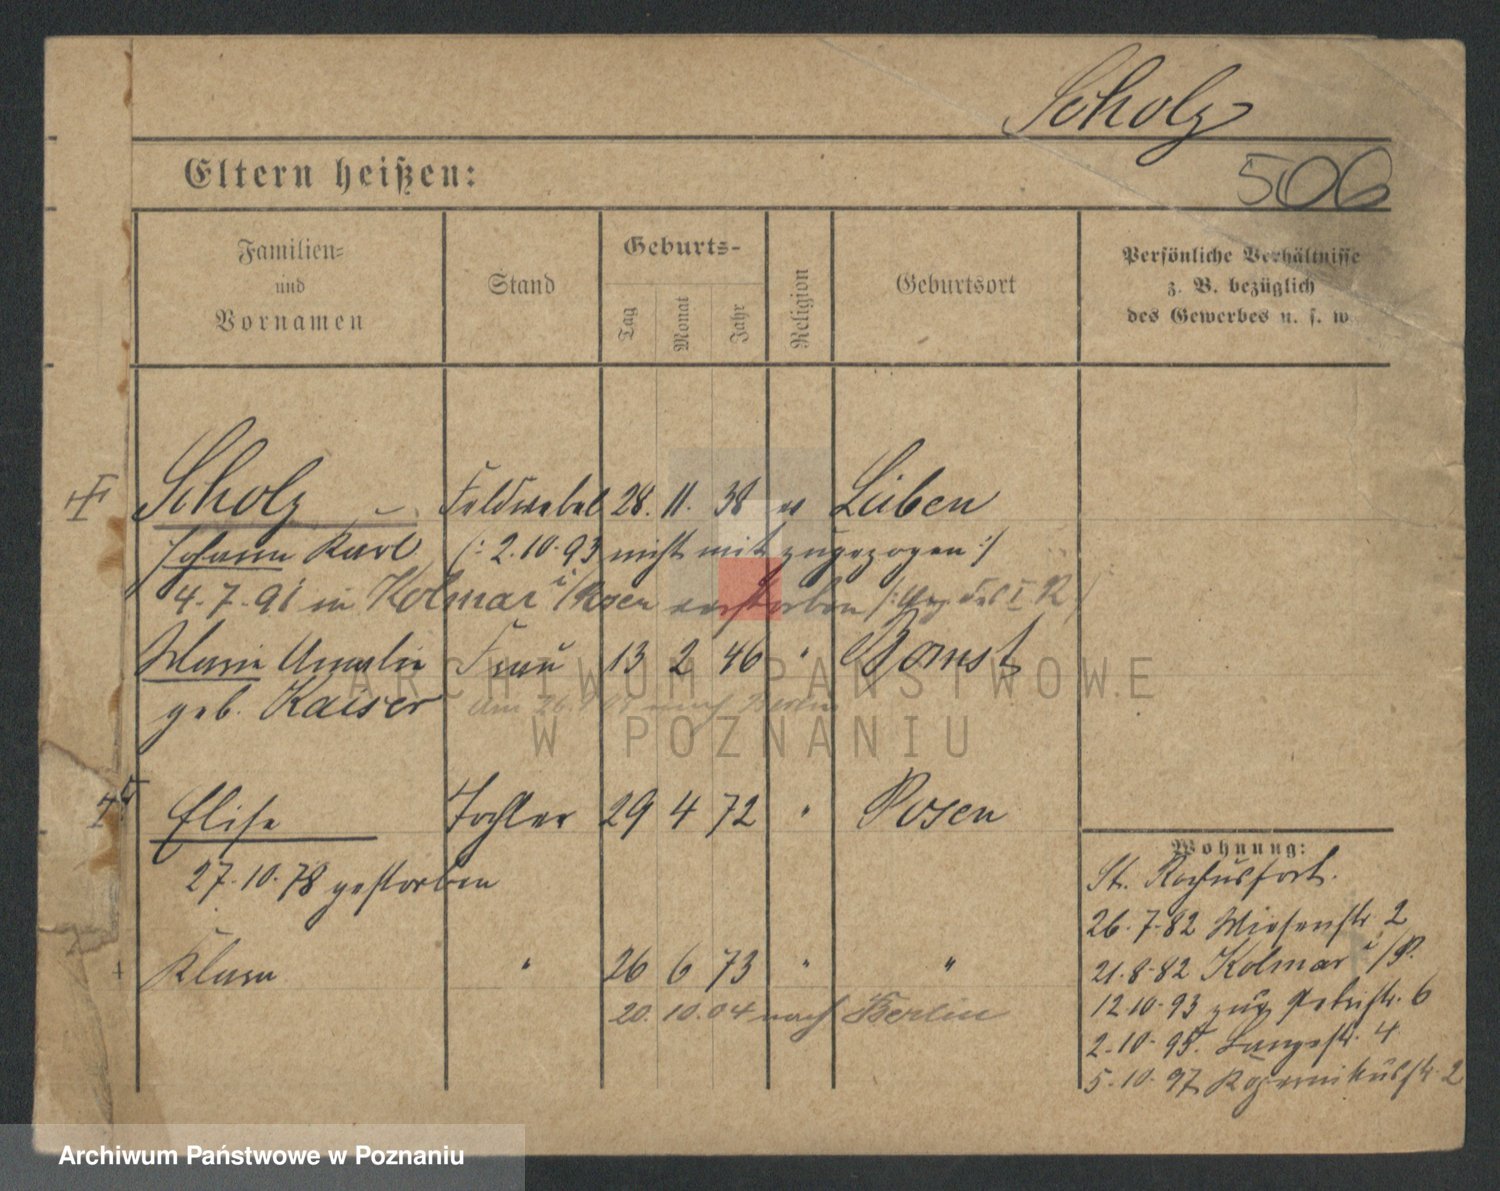 Scholz
Eltern heißen:
506
Familien=
und
Vornamen
Stand
Geburts-
Tag
Monat
Jahr
Religion
Geburtsort
Persönliche Verhältnisse
z. B. bezüglich
des Gewerbes u. s. w.
Scholz Feldwebel 28. 11. 38 ev Lüben
Johann Karl (: 2.10.93 nicht mit zugezogen :)
4.7.91 in Kolmar i/Posen verstorben
Marie Amalie Frau 13 2 46 " Bomst
geb. Kaiser
nach Berlin
Elise Tochter 29 4 72 " Posen
27.10.78 gestorben
Klara " 26 6 73 " "
20.10.04 nach Berlin
Wohnung:
St. Rochusfort.
26.7.82 Wiesenstr. 2
21.8.82 Kolmar i/P.
12.10.93 zug. Petristr. 6
2.10.95. Langestr. 4
5.10.97 Kopernikusstr. 2
ARCHIWUM PAŃSTWOWE
W POZNANIU
Archiwum Państwowe w Poznaniu